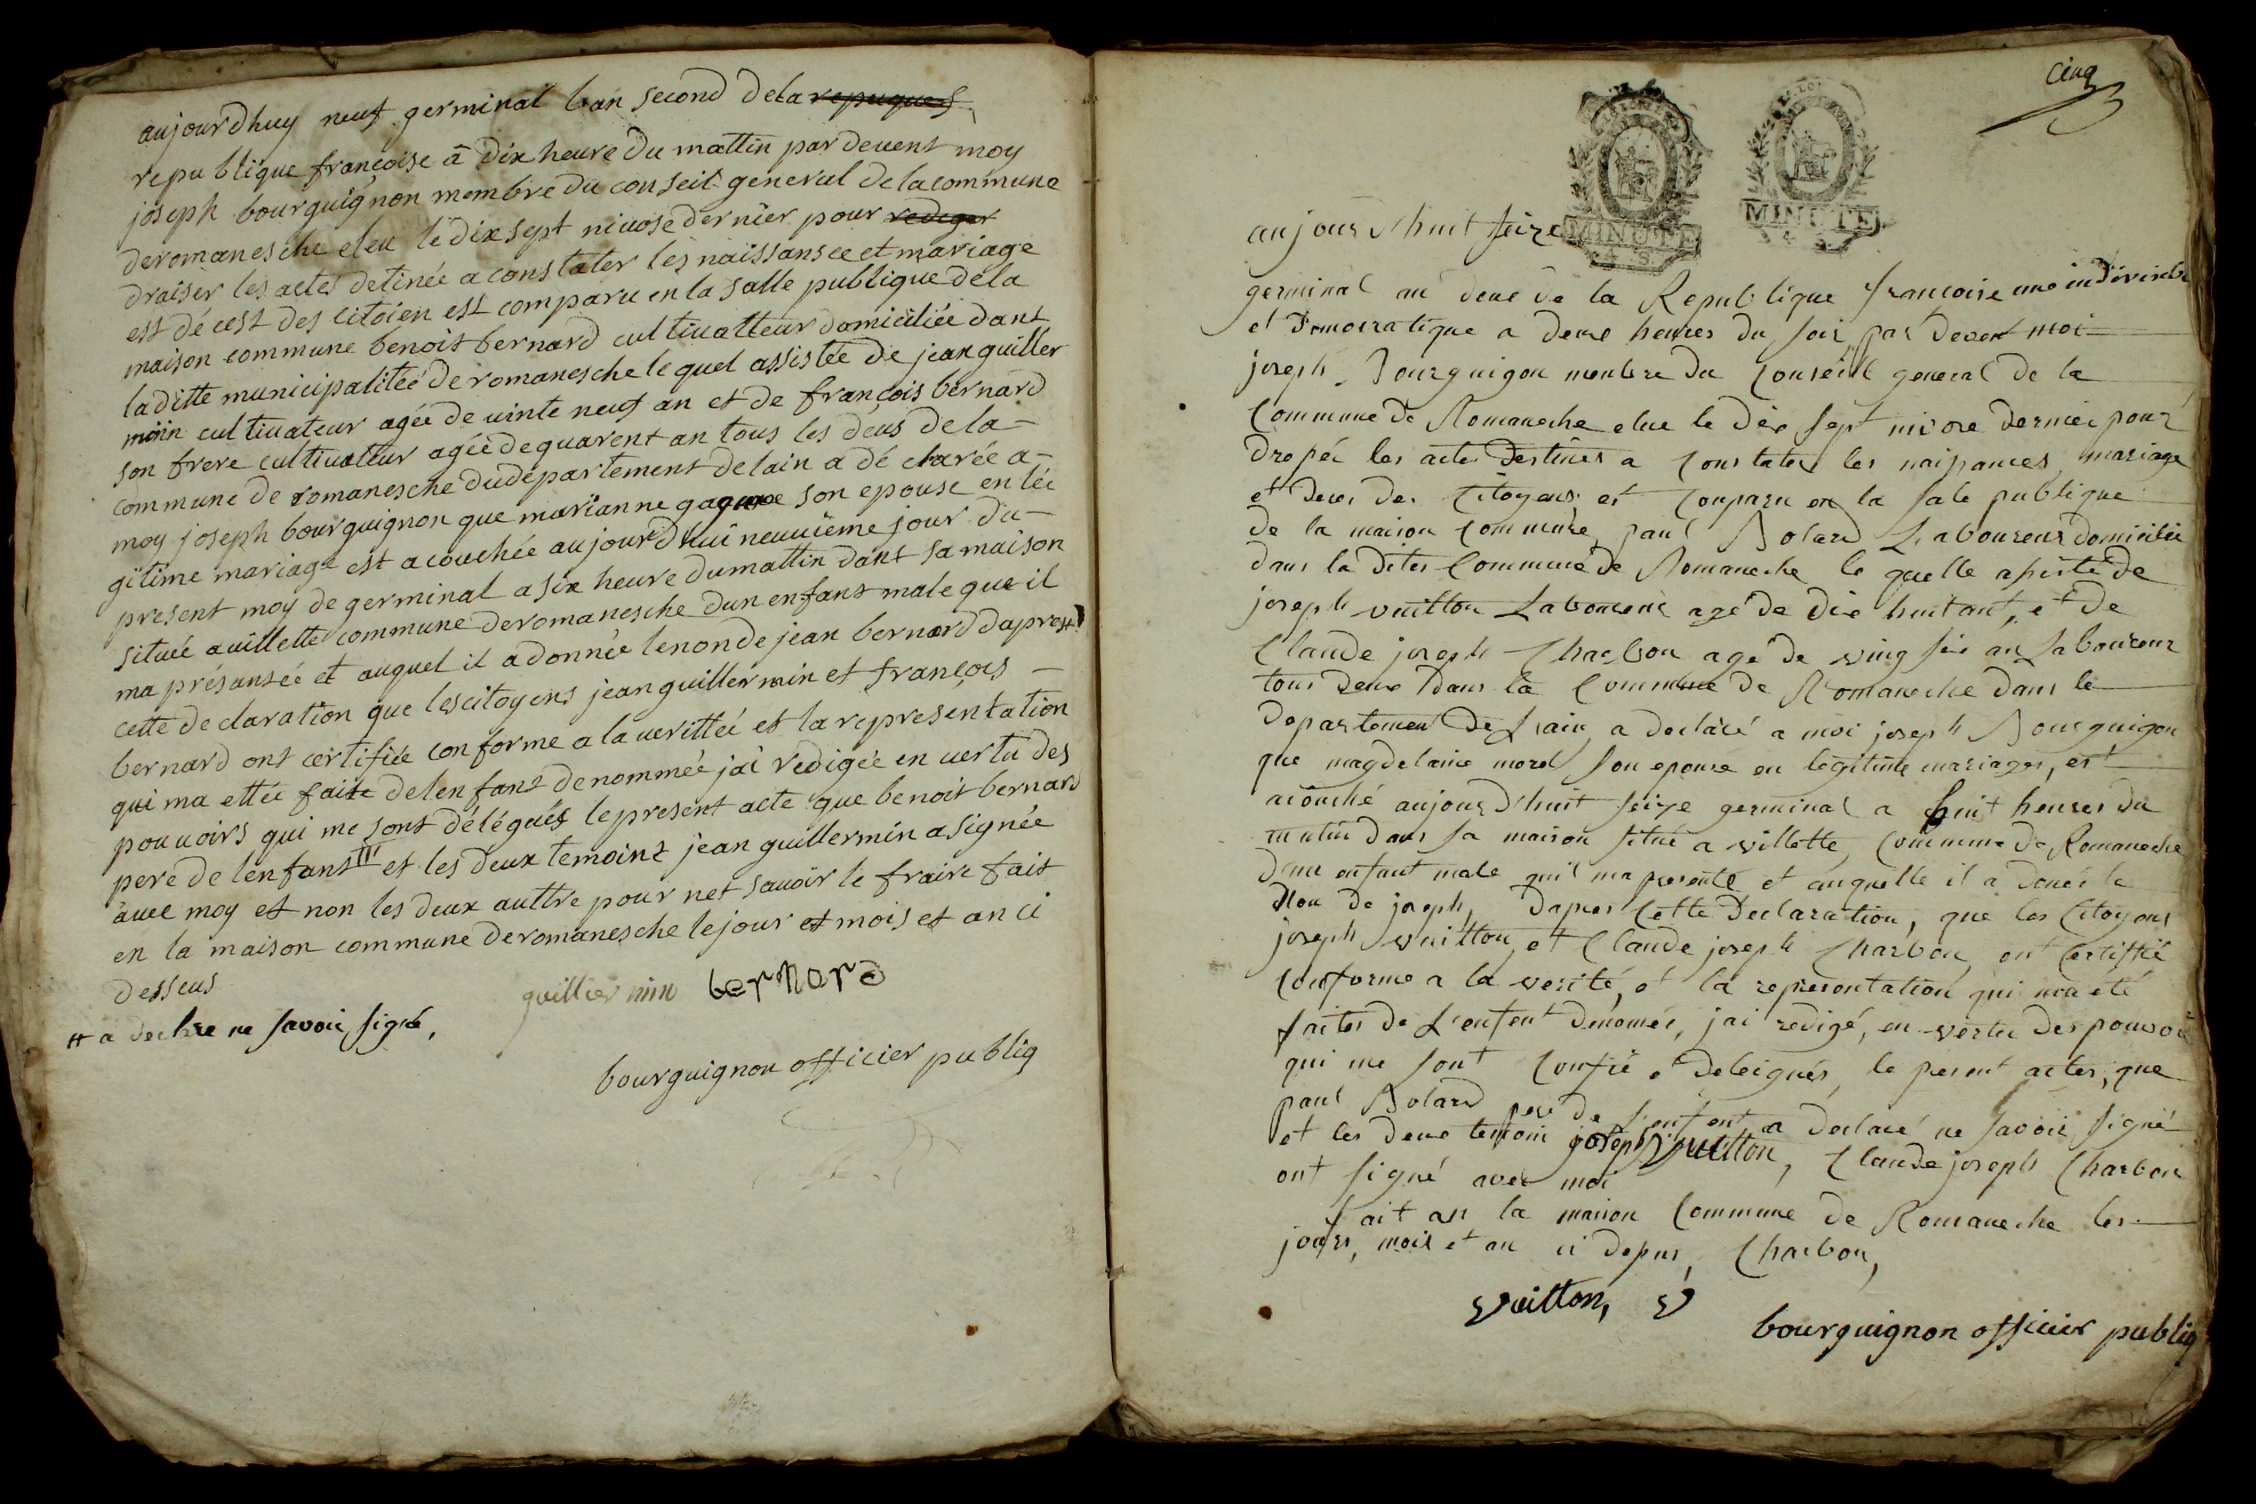 aujourdhuy neuf germinal lan second dela repuques
republique françoise à dix heure du mattin pardevent moy
joseph bourguignon membre du conseil general delacommune
deromanesche eleu le dixsept nivose dernier pour rediger
draiser les actes detinée a constater les naissansee et mariage
est décest des citoien est comparu en la salle publique dela
maison commune benoit bernard cultivatteur domiciliée dant
laditte municipalitée deromanesche lequel assistée de jean guiller
min cultivateur agée de vinte neuf an et de françois bernard
son frere cultivateur agée dequarent an tous les deus dela
commune de romanesche dudepartement delain a dé clarée a
moy joseph bourguignon que marianne son epouse en léé
gitime mariage est acouchée aujourdhui neuvieme jour du
present moy de germinal a six heure dumattin dant sa maison
située avillette commune deromanesche dun enfant male que il
ma présantée et auquel il adonnée lenonde jean bernard dapress
cette declaration que lescitoyens jean guillermin et françois
bernard ont certifiée conforme a la verittée et la representation
qui ma ettée faite delenfant denommée jai redigée en vertu des
pouvoirs qui me sont délégués lepresent acte que benoit bernard
pere de lenfant et les deux temoint jean guillermin asignée
avec moy et non les deux auttre pour net savoir le fraire fait
en la maison commune deromanesche lejour et mois et an ci
dessus
guilliermin bernard
# a declare ne savoir signé,
bourguignon officier publiq
cinq
MINUTE
MINUTE
aujour dhuit seize
germinal an deux de la Republique francoise une indivisible
et Democratique a deux heures du soir, par devent moi
joseph Bourguigon menbre du Conseill general de la
Commune de Romaneche elue le dix sept nivose dernier pour
dressé les acte destines a Constater les naissances, mariage
et deces des Citoyens est Conparu en la sale publique
de la maison Commune, paul Bolard Laboureur domicilié
dans la dites Commune de Romaneche le quelle assisté de
joseph vuitton Laboureur agé de dix huitant, et de
Claude joseph Charbon agé de ving six an Laboureur
tous deux dans la Commune de Romaneche dans le
departement de Lain, a declaré a moi joseph Bourguigon
que magdelaine morel son epouse en legitime mariages, est
acouché aujour dhuit seize germinal a huit heures du
matin dans sa maison situé a villette, Commune de Romaneche
dune enfant male quil ma presenté et auquelle il a doné le
Non de joseph, dapres Cette Declaration, que les Citoyens
joseph vuitton, et Claude joseph Charbon, ont Certiffié
Conforme a la verité, et la representation qui ma été
faites de Lenfent denomée, jai redigé, en vertu des pouvoir
qui me sont Confié et deleigués, le present actes, que
paul Bolard pere de Lenfent, a declaré ne savoir signé
et les deux temoin joseph vuitton, Claude joseph Charbon
ont signé avec moi
fait an la maison Commune de Romaneche les
jours, mois et an ci depus, Charbon,
vuitton, v
bourguignon officier publiq